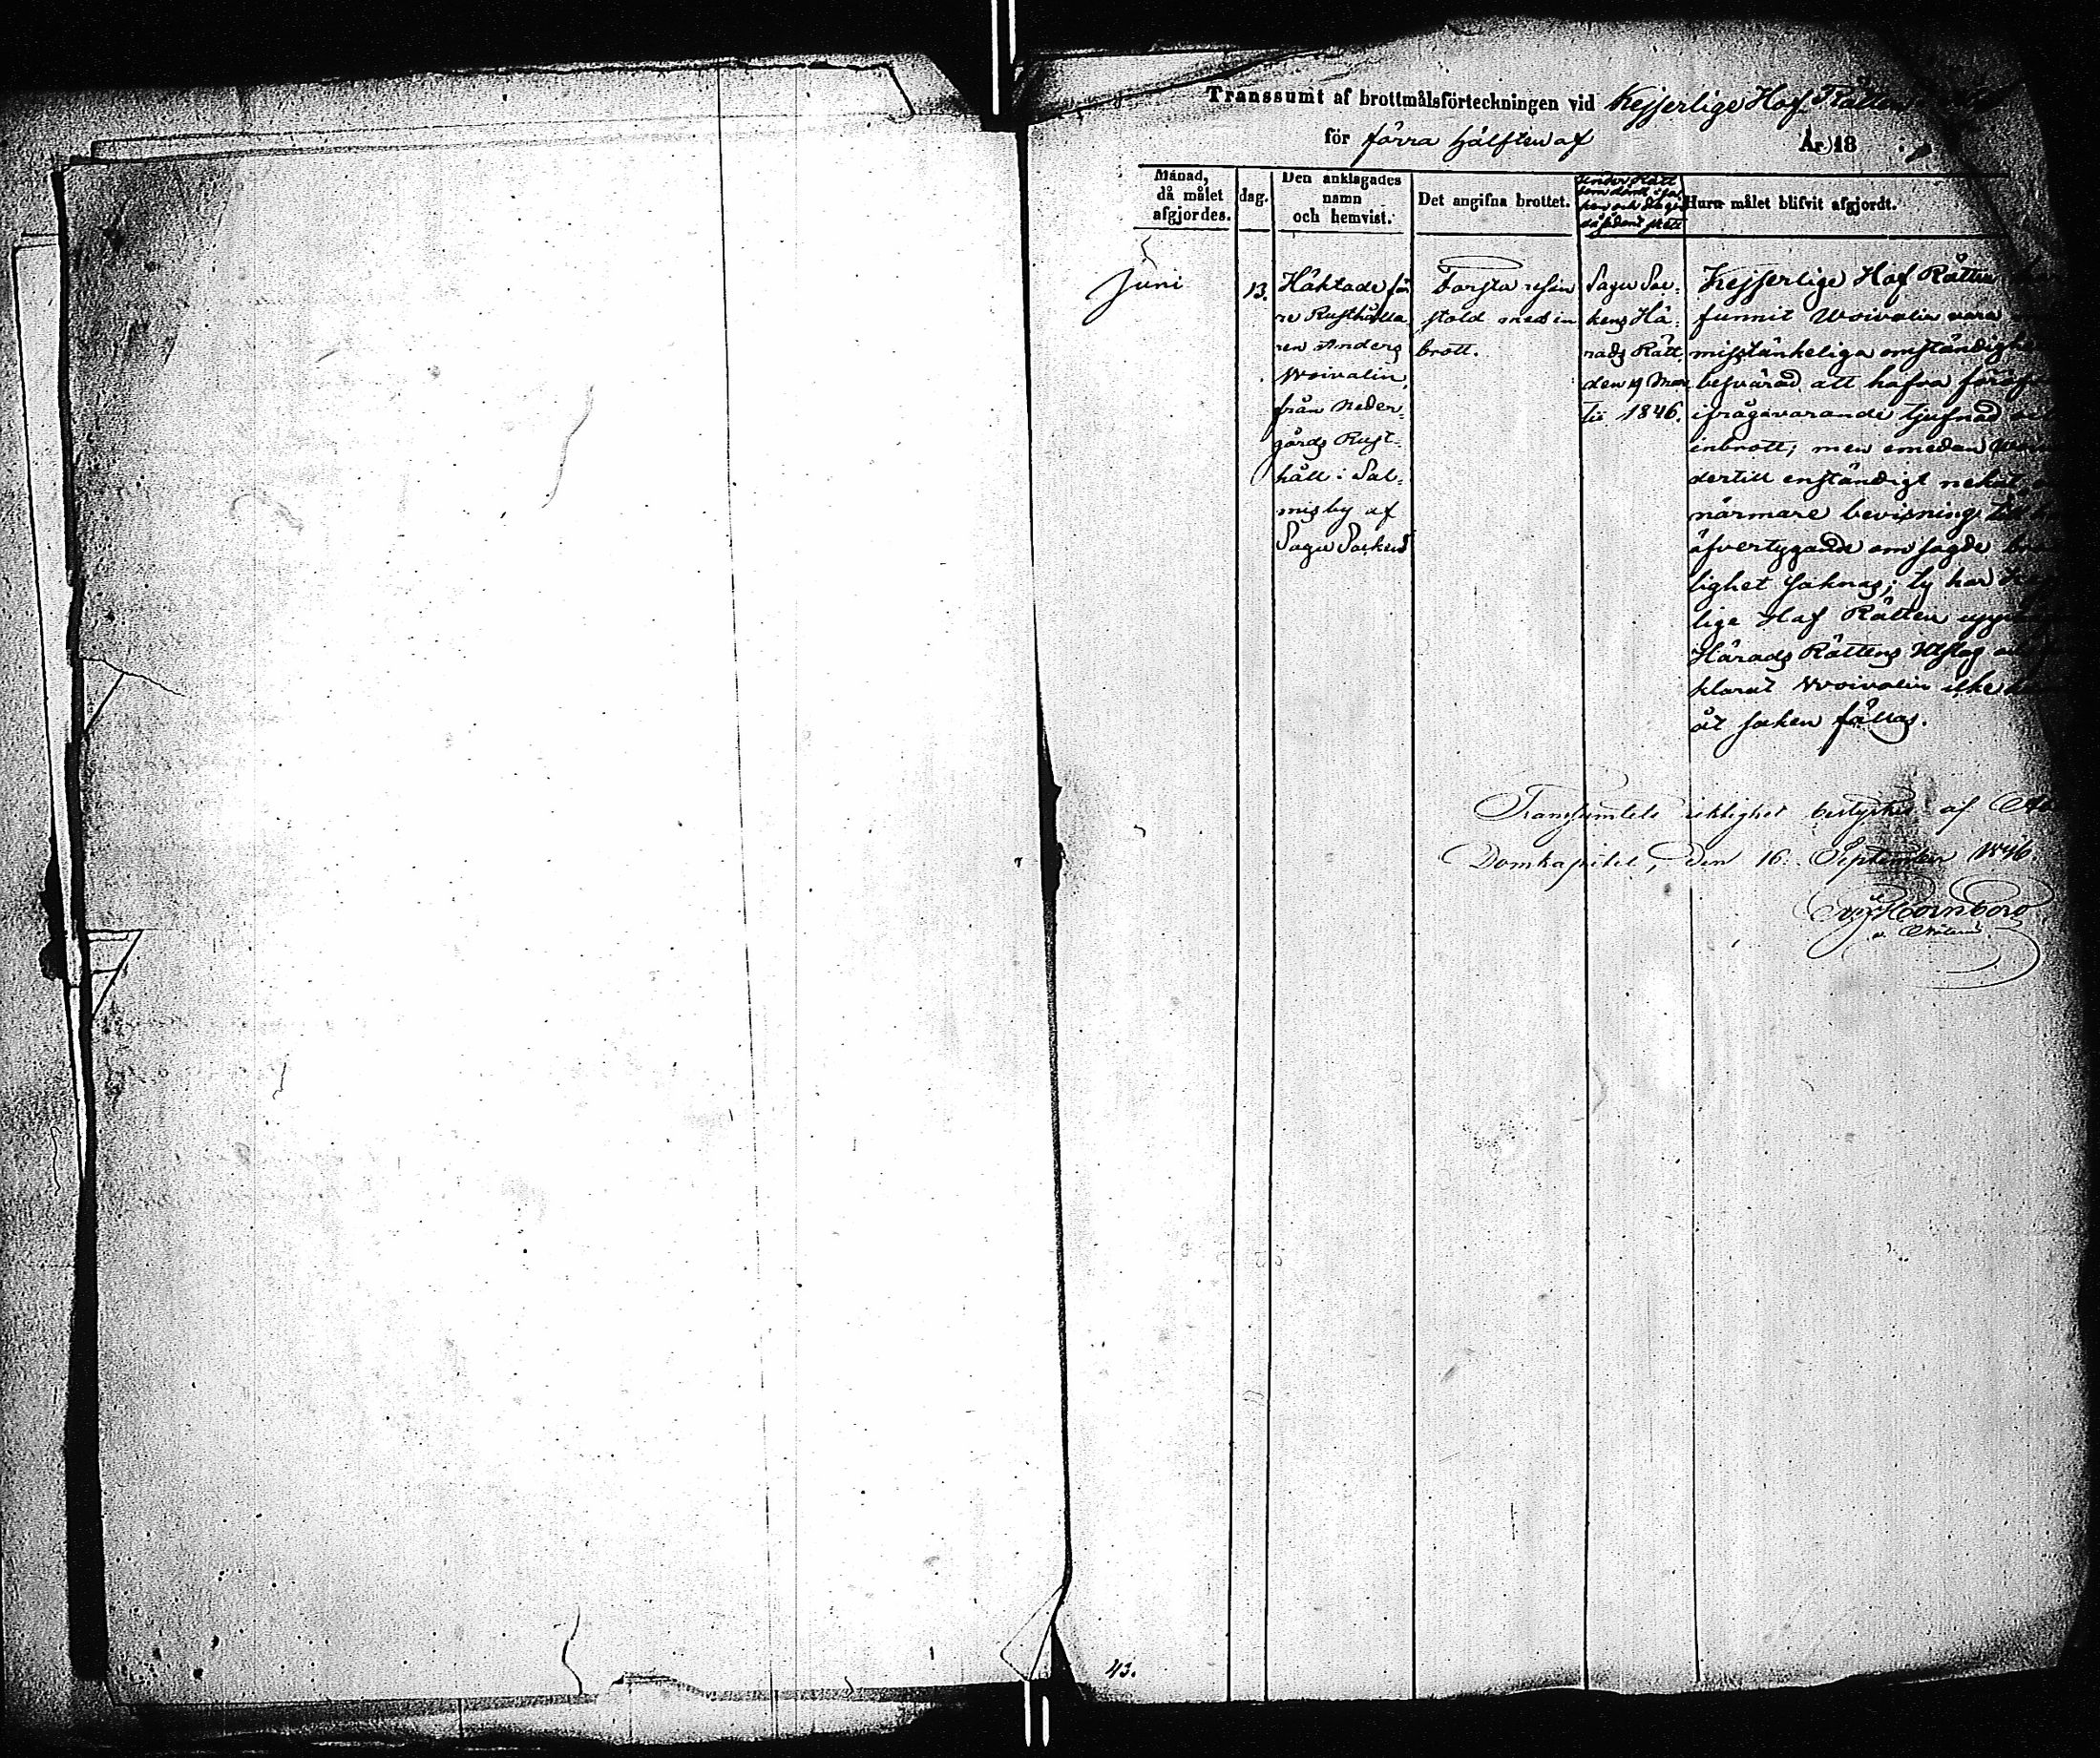 Transsumt af brottmålsförteckningen vid Kejserlige Hof Rätten
för förra hälften af År 18
Månad, då målet afgjordes.
dag.
Den anklagades namn och hemvist.
Det angifna brottet.
under Rätt
som dömt i sa-
ken och dagen
då sådant skett
Huru målet blifvit afgjordt.
Juni
13.
Häktade för
re Rusthålla
ren Anders
Woivalin,
från Neder-
gårds Rust-
håll i Sal-
mis by af
Sagu Socken
Första resan
stöld med in
brott.
Sagu Soc-
kens Hä-
rads Rätt
den 19 Mar
tii 1846.
Kejserlige Hof Rätten
funnit Woivalin vara
misstänkeliga omständighe
besvärad att hafva föröf
ifrågavarande tjufnad
inbrott; men emedan
dertill enständigt nekat
närmare bevisning till
öfvertygande om sagde
lighet saknas; ty har
lige Hof Rätten upp
Härads Rättens Utslag
klarat Woivalin icke
åt saken fällas.
Transsumtets riktighet bestyrkes af
Domkapitel, den 16 September 1846.
Hornborg
43.